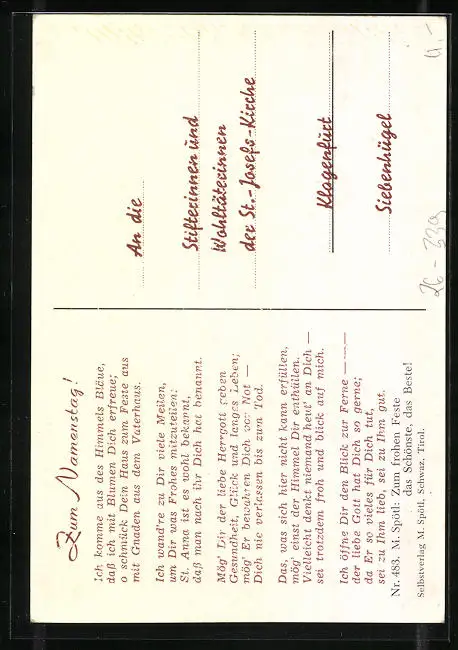 Zum Namenstag!
Ich komme aus des Himmels Bläue,
daß ich mit Blumen Dich erfreue,
o schmück Dein Haus zum Feste aus
mit Gnaden aus dem Vaterhaus.
Ich wand're zu Dir viele Meilen,
um Dir was Frohes mitzuteilen:
St. Anna ist es wohl bekannt,
daß man nach ihr Dich hat benannt.
Mög' Dir der liebe Herrgott geben
Gesundheit, Glück und langes Leben;
mög' Er bewahren Dich vor Not —
Dich nie verlassen bis zum Tod.
Das, was sich hier nicht kann erfüllen,
mög' einst der Himmel Dir enthüllen.
Vielleicht denkt niemand heut' an Dich —
sei trotzdem froh und blick auf mich.
Ich öffne Dir den Blick zur Ferne — — —
der liebe Gott hat Dich so gerne;
da Er so vieles für Dich tut,
sei zu Ihm lieb, sei zu Ihm gut.
Nr. 483. M. Spötl: Zum frohen Feste
das Schönste, das Beste!
Selbstverlag M. Spötl, Schwaz, Tirol.
An die
Stifterinnen und
Wohltäterinnen
der St.-Josefs-Kirche
Klagenfurt
Siebenhügel
26 - 339